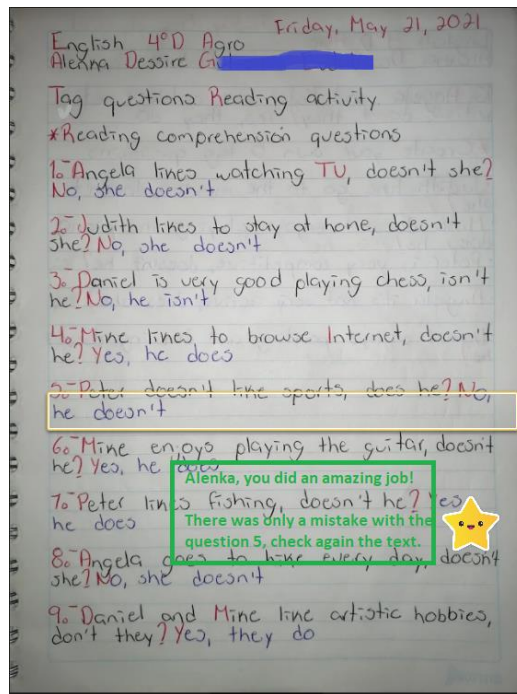 Friday, May 21, 2021
English 4°D Agro
Alenka Dessire
Tag questions Reading activity
*Reading comprehension questions
1.- Angela likes watching TV, doesn't she?
No, she doesn't
2.- Judith likes to stay at home, doesn't
she? No, she doesn't
3.- Daniel is very good playing chess, isn't
he? No, he isn't
4.- Mike likes to browse Internet, doesn't
he? Yes, he does
5.- Peter doesn't like sports, does he? No,
he doesn't
6.- Mike enjoys playing the guitar, doesn't
he? Yes, he does
7.- Peter likes fishing, doesn't he? Yes
he does
8.- Angela goes to hike every day, doesn't
she? No, she doesn't
9.- Daniel and Mike like artistic hobbies,
don't they? Yes, they do
Alenka, you did an amazing job!
There was only a mistake with the
question 5, check again the text.